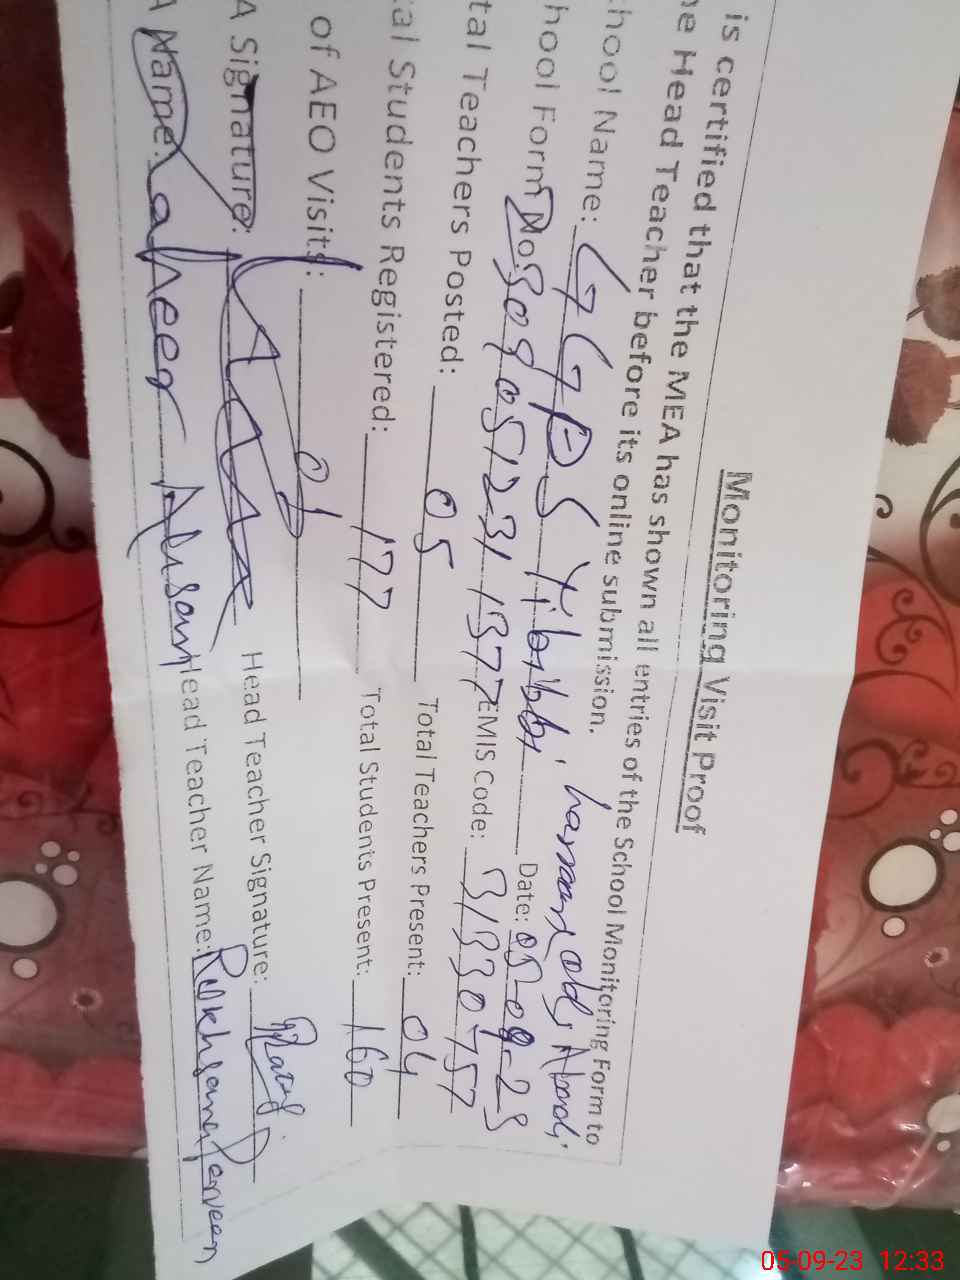 Monitoring Visit Proof
is certified that the MEA has shown all entries of the School Monitoring Form to
he Head Teacher before its online submission.
hool Name: GGPS Hibibbi, hassanabdi Abadi
hool Form No: Date: 05-09-23
tal Teachers Posted: 05 Total Teachers Present: 04
EMIS Code: 31330457
al Students Registered: 177 Total Students Present: 160
of AEO Visits: 01
A Signature: Head Teacher Signature:
A Name: Zaheer Ahsan Head Teacher Name: Rukhsana Parveen
05-09-23 12:33